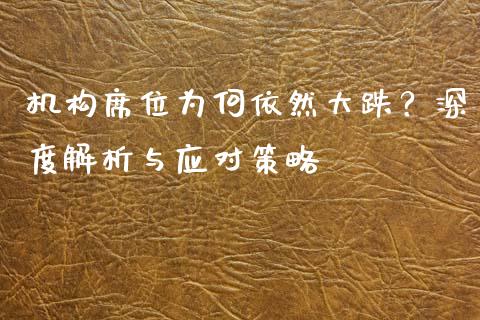 机构席位为何依然大跌？深
度解析与应对策略